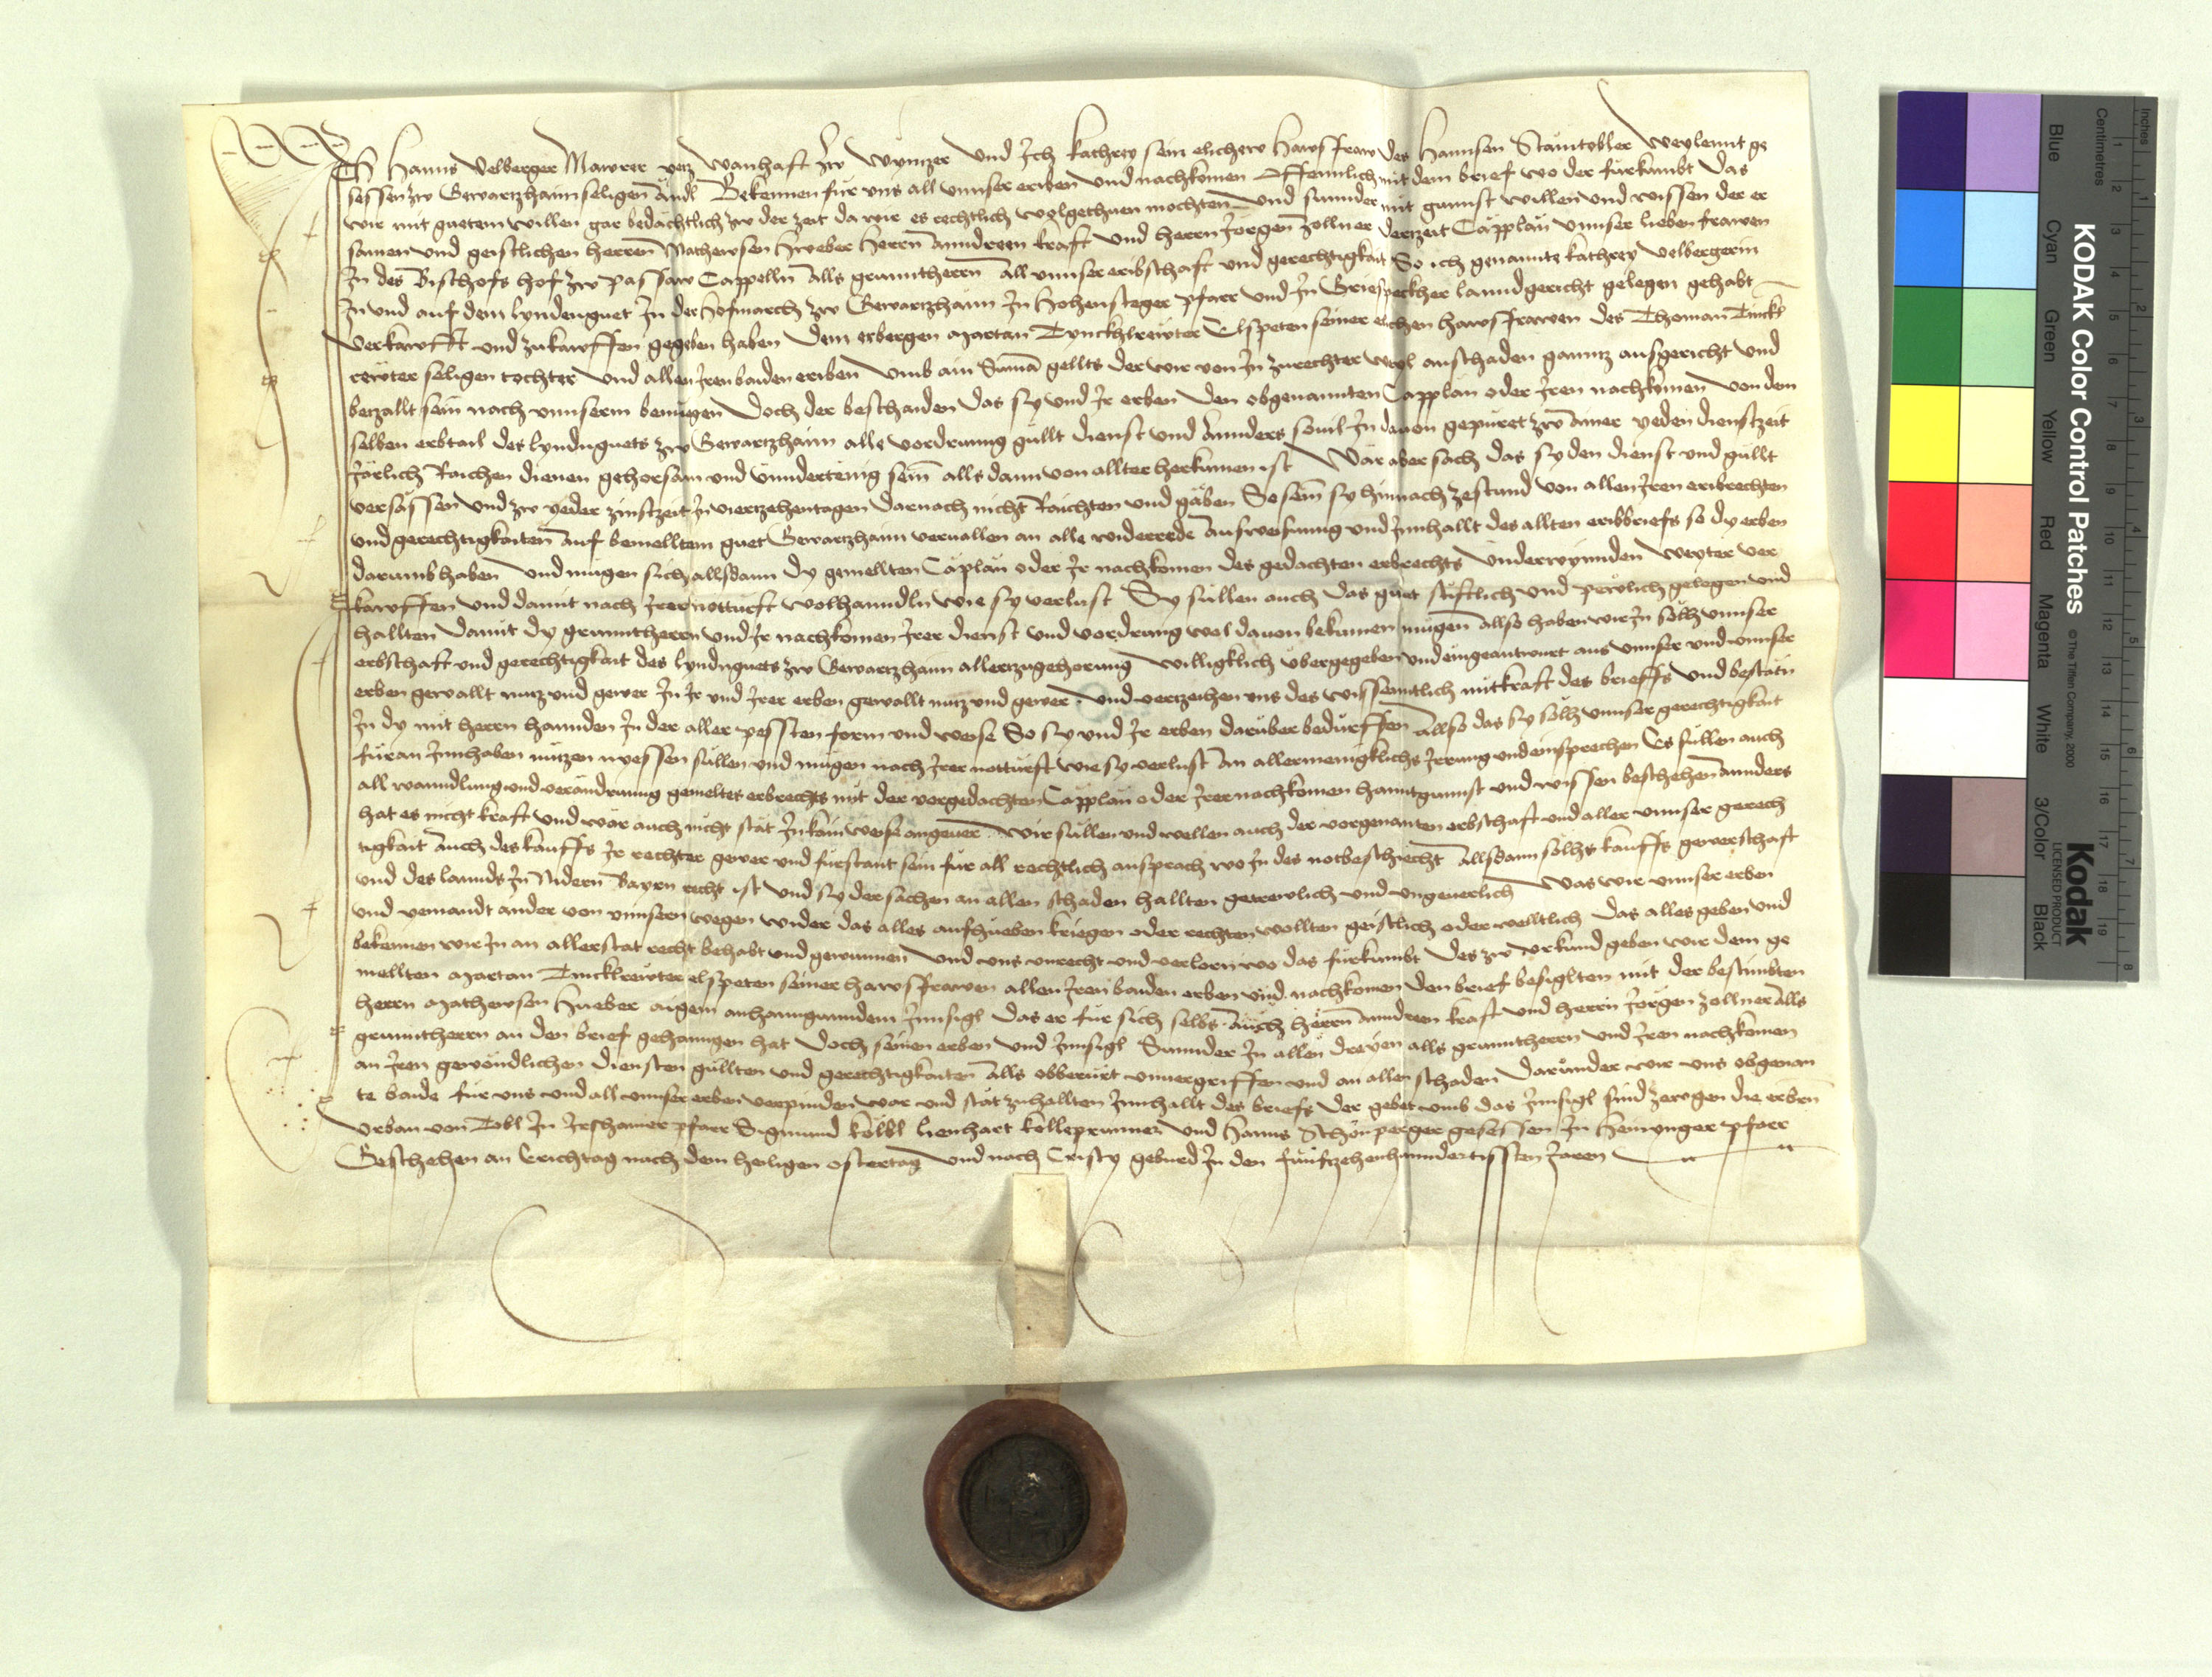 Ich Hanns Velberger Mawrer yetz Wanhaft zw Wymtzer Und Ich Kathrey sein elichew Hawsfraw des Hannsen Stauntobler Weylennt ge
sessen zw Gewartzhaim seligen Aindl Bekennen fur vns all vnnser eriben Und nachkomen Offennlich mit dem brief wo der furkumbt Das
wir mit guetem willen gar bedachtlich zw der zeit da wir es rechtlich wolgethuen mochten Und sunnder mit gunnst willen Und wissen der er
samen Und geistlichen Herren Mathewsen Hweber Herrn Anndreen Kraft Und Herrn Jorgen Zollner Dertzeit Capplan Vnnser lieben frawen
In des Bischofs hof zw Passaw Cappelln Alls grunntherrn All vnnser eribschaft Und gerechtigkait So ich genannte Kathrey Velbergerin
In und auf dem lynden guet In der Hofmarch zw Gewartzhaim In Hohensteger pfarr Und In Griespeckher lanndgericht gelegen gehabt
Verkawfft Und zukawffen gegeben haben Dem erbergen Martan Dynckhlrewter Elspeten seiner elichen hawsfrawen Des Thoman Dinckl
rewter seligen tochter Und allen Iren baiden eriben Umb ain Suma gellts Der wir von In zurechter weyl anschaden ganntz ausgericht Und
betzallt sein nach vnnserm benuegen Doch der beschaiden Das sy Und Ir erben Den obgenannten Capplan oder Iren nachkomen Von dem
selben erbtail des lyndnguets zw Gewartzhaim alle vordrunng gullt dienst Und Annders souil In dauon gepuret zw ainer yeden dienstzeit
Järlich Raichen dienen gehorsam Und Unndertenig sein alls dann von allter herkumen ist Wär aber sach das sy den dienst Und gullt
versässen Und zw yeder zinstzeit In viertzehentagen Darnach nicht Raichten Und gäben So sein sy hinnach zestund Von allen Iren eribrechten
Und gerechtigkaiten Auf bemelltem guet Gewartzhaim veruallen an alle widerrede Ausweisunng Und Innhallt des allten eribbriefs so dy erben
Darumb haben Und mugen sich allsdann Dy gemellten Caplan oder Ir nachkomen des gedachten erbrechts Underwynnden Weyter ver
kawffen Und damit nach Irer notturft wolhanndln Wie sy verlust Sy sullen auch das guet stiftlich Und pewlich gelegen Und
hallten Damit dy grunntherrn Und Ir nachkomen Irer dienst Und vordrung wol dauon bekumen mugen Allso haben wir In solh vnnser
erbschaft Und gerechtigkait des lyndnguets zw Gewartzhaim allertzugehorung Willigklich ubergegeben Und eingeantwurt aus vnnser Und vnnser
erben gewallt nutz Und gewer In Ir Und Irer erben gewallt nutz Und gewer Und vertzeihen vns des wissenntlich mitkraft des brieffs Und bestatn
In dy mit herrn hannden In der aller pessten form Und weise So sy Und Ir erben Daruber bedurffen Allso das sy solh vnnser gerechtigkait
furan Innhaben nutzen nyessen sullen Und mugen nach Irer notturft wie sy verlust An allermenigklichs Irrung Und einsprechen Es sullen auch
all wanndlung Und verändrunng gemeltes erbrechts mit der vorgedachten Capplan oder Irer nachkomen hanntgunst Und wissen beschehen Annders
hat es nicht kraft Und wär auch nicht stät In kain weise angeuer Wir sullen Und wellen auch der vorgenanten erbschaft Und aller vnnser gerech
tigkait Auch des kauffs Ir rechter gewer Und furstant sein fur all rechtlich ansprach wo In des notbeschiecht Allsdann solhs kauffs gewerschaft
Und des lannds In Nidern Bayrn recht ist Und sy der sachen an allen schaden hallten getrewlich Und Ungeuerlich Was wir vnnser erben
Und yemandt ander von vnnsern wegen wider das alles anfhueben kriegen oder rechten wollten geistlich oder welltlich Das alles geben Und
bekennen wir In an allerstat recht behabt Und gewunnen Und vns vnrecht Und verlorn wo das furkumbt Des zw vrkund geben wir dem ge
mellten Martan Dincklrewter elspeten seiner hawsfrawen allen Iren baiden erben Und nachkomen Den brief besiglten mit der bestimbten
herrn Mathewsen Hueber aigem anhanngunndem Innsigl Das er fur sich selbs Auch herrn Anndreen kraft Und herrn Jorgen zollner Alls
grunntherrn an den brief gehanngen hat Doch seinen erben Und Innsigl Sunnder In allen dreyen alls grunntherrn Und Iren nachkomen
an Iren gewondlichen diensten gullten Und gerechtigkaiten Alls obberürt vnuergriffen Und an allen schaden Darunder wir vns obgenan
te baide fur vns Und all vnnser erben verpinden war Und stät zuhallten Innhallt des briefs Der gebet umb das Innsigl sind zewgen die erbern
Vrban von Tobl In Irschamer pfarr Sigmund kolbl Lienhart kolleprunner Und Hanns Schonperger gesessen In Heinynger pfarr
Geschehen an Erichtag nach dem heiligen ostertag Und nach Cristy geburd In den funfftzehenhunndertissten Jaren
Inches
Centimetres
KODAK Color Control Patches
© The Tiffen Company, 2000
Kodak
LICENSED PRODUCT
Blue
Cyan
Green
Yellow
Red
Magenta
White
3/Color
Black